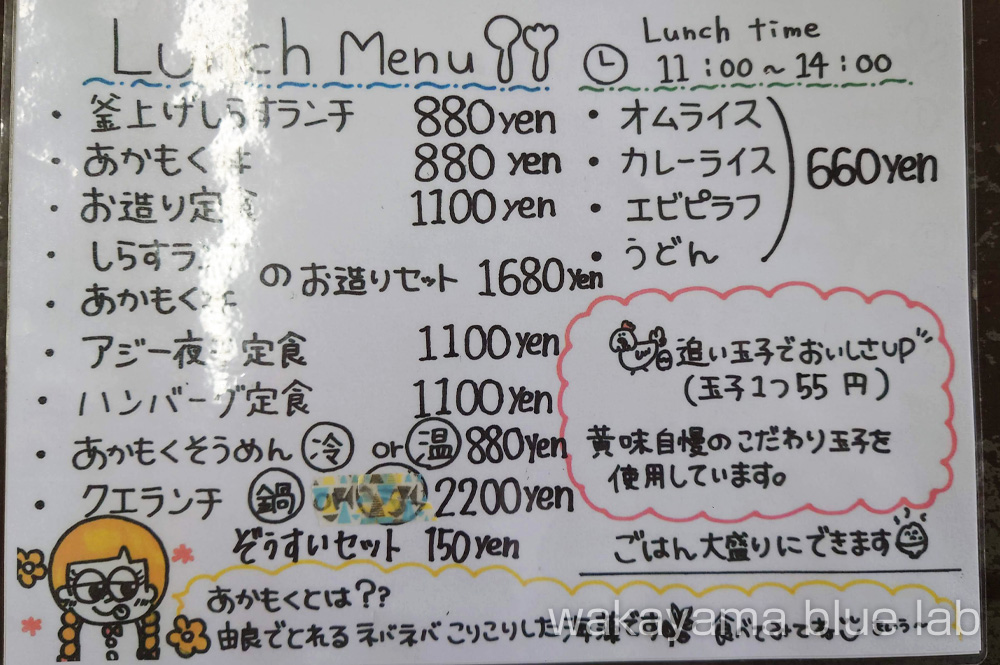 Lunch Menu
Lunch time
11:00～14:00
・釜上げしらすランチ 880yen
・あかもく丼 880yen
・お造り定食 1100yen
・しらすラン
・あかもく丼
のお造りセット 1680yen
・アジ一夜干定食 1100yen
・ハンバーグ定食 1100yen
・あかもくそうめん 冷 or 温 880yen
・クエランチ 鍋 2200yen
ぞうすいセット 150yen
・オムライス
・カレーライス
・エビピラフ
・うどん
660yen
追い玉子でおいしさUP
(玉子1つ55円)
黄味自慢のこだわり玉子を
使用しています。
ごはん大盛りにできます
あかもくとは??
由良でとれるネバネバこりこりした海藻です 食べてみてね
wakayama blue lab